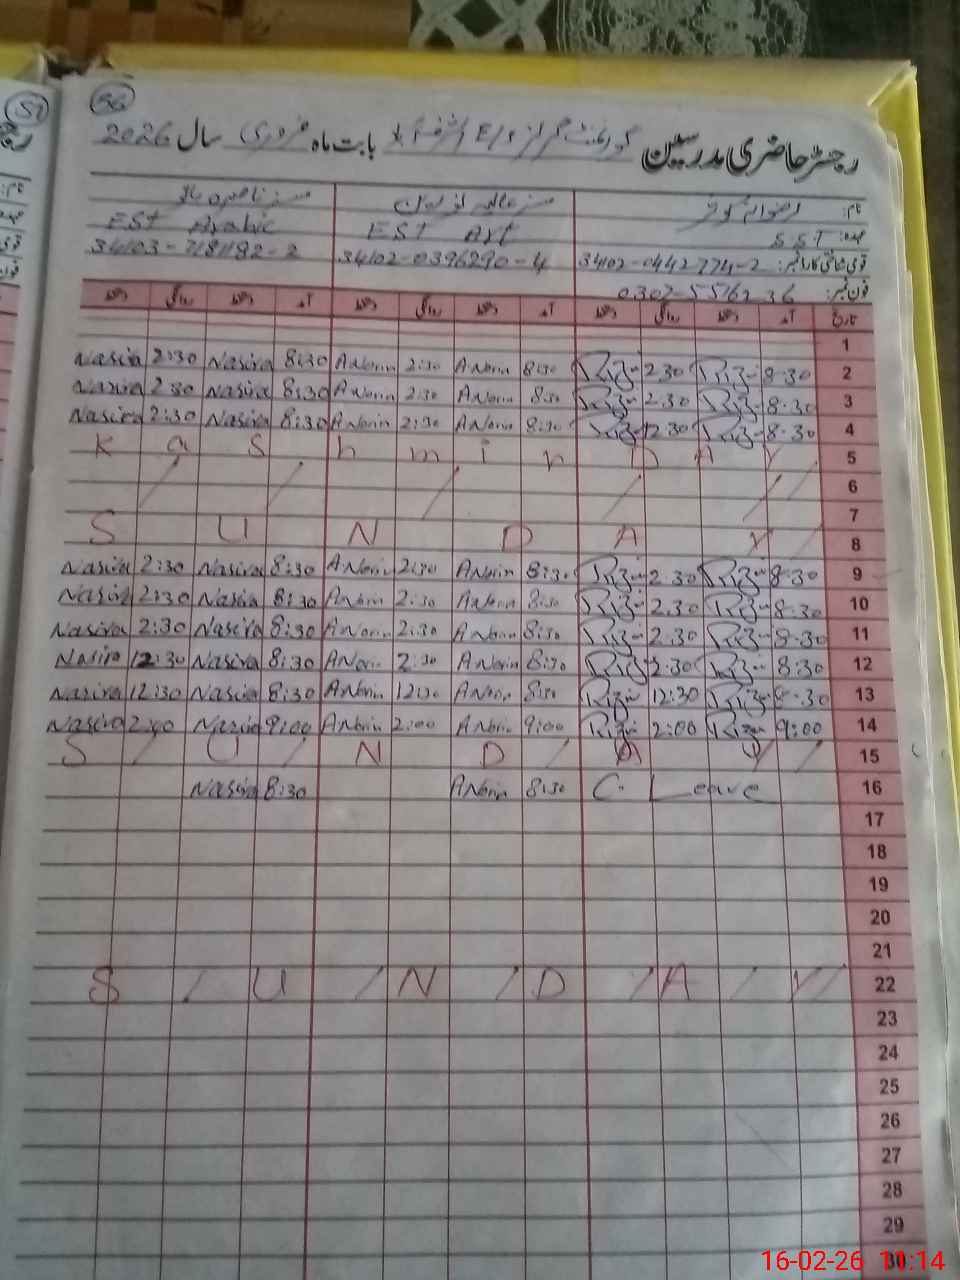 51
56
رجسٹر حاضری مدرسین گورنمنٹ گرلز E/S بابت ماہ فروری سال 2026
نام: رضوانہ کوثر مسز عالیہ نورین مسز ناصرہ بانو
عہدہ: SST EST Art EST Arabic
قومی شناختی کارڈ نمبر: 34102-0442774-2 34102-0396290-4 34103-7181182-2
فون نمبر: 0302-5516236
تاریخ آمد دستخط روانگی دستخط آمد دستخط روانگی دستخط آمد دستخط روانگی دستخط
1
Nasira 2:30 Nasira 8:30 A Norin 2:30 A Norin 8:30 Riz 2.30 Riz 8.30 2
Nasira 2:30 Nasira 8:30 A Norin 2:30 A Norin 8:30 Riz 2.30 Riz 8.30 3
Nasira 2:30 Nasira 8:30 A Norin 2:30 A Norin 8:30 Riz 12.30 Riz 8.30 4
K a S h m i r D A Y 5
6
7
S U N D A Y 8
Nasira 2:30 Nasira 8:30 A Norin 2:30 A Norin 8:30 Riz 2.30 Riz 8.30 9
Nasira 2:30 Nasira 8:30 A Norin 2:30 A Norin 8:30 Riz 2.30 Riz 8.30 10
Nasira 2:30 Nasira 8:30 A Norin 2:30 A Norin 8:30 Riz 2.30 Riz 8.30 11
Nasira 12:30 Nasira 8:30 A Norin 2:30 A Norin 8:30 Riz 2:30 Riz 8:30 12
Nasira 12:30 Nasira 8:30 A Norin 12:30 A Norin 8:30 Riz 12:30 Riz 8.30 13
Nasira 2:00 Nasira 9:00 A Norin 2:00 A Norin 9:00 Riz 2:00 Riz 9:00 14
S U N D A Y 15
Nasira 8:30 A Norin 8:30 C. Leave 16
17
18
19
20
21
S U N D A Y 22
23
24
25
26
27
28
29
30
16-02-26 11:14